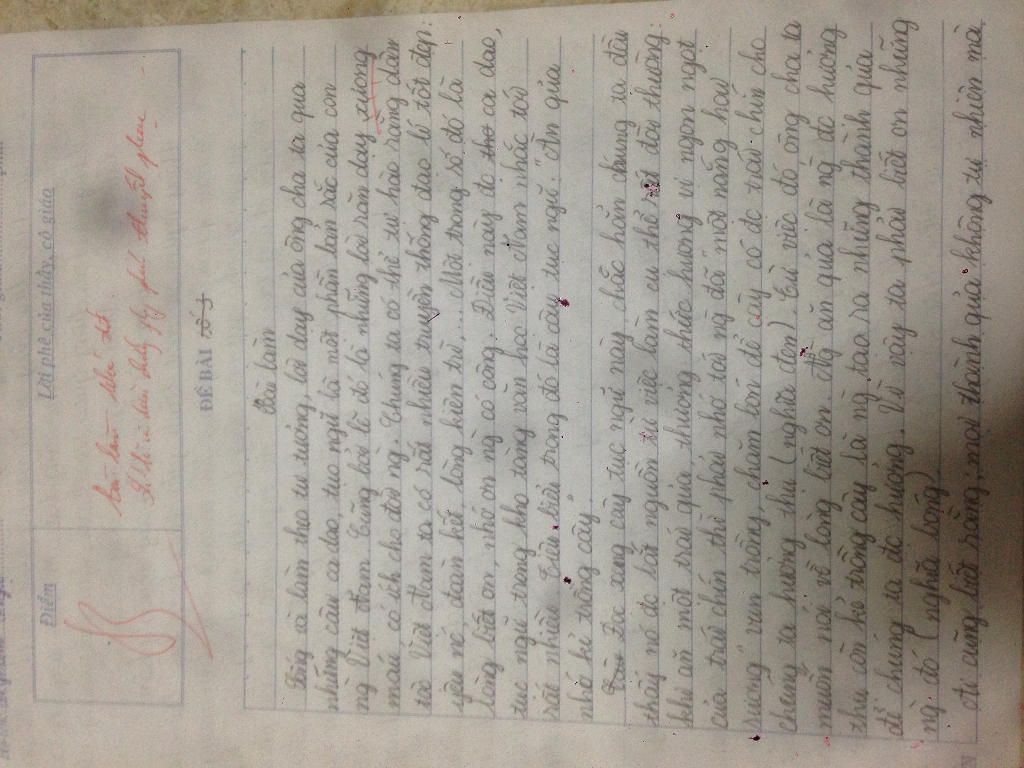 Điểm
Lời phê của thầy, cô giáo
Bài làm
ĐỀ BÀI số 5
Bài làm
Sống và làm theo tư tưởng, lời dạy của ông cha ta qua
những câu ca dao, tục ngữ là một phần bản sắc của con
ng Việt Nam. Cũng bởi lẽ đó là những lời răn dạy xương
máu có ích cho đời ng. Chúng ta có thể tự hào rằng dân
tộc Việt Nam ta có rất nhiều truyền thống đạo lí tốt đẹp:
yêu nc, đoàn kết, lòng kiên trì,... Một trong số đó là
lòng biết ơn, nhớ ơn ng có công. Điều này đc thơ ca dao,
tục ngữ trong kho tàng văn học Việt Nam nhắc tới
rất nhiều. Tiêu biểu trong đó là câu tục ngữ: "Ăn quả
nhớ kẻ trồng cây"
Đọc xong câu tục ngữ này, chắc hẳn chúng ta đều
thấy nó đc bắt nguồn từ việc làm cụ thể rất đời thường:
khi ăn một trái quả, thưởng thức hương vị ngon ngọt
của trái chín thì phải nhớ tới ng đã "một nắng hai
sương" vun trồng, chăm bón để cây có đc trái chín cho
chúng ta hưởng thụ (nghĩa đen). Từ việc đó ông cha ta
muốn nói về lòng biết ơn. Ng ăn quả là ng đc hưởng
thụ còn kẻ trồng cây là ng tạo ra những thành quả
để chúng ta đc hưởng. Vì vậy ta phải biết ơn những
ng đó (nghĩa bóng)
Ai cũng biết rằng, mọi thành quả không tự nhiên mà